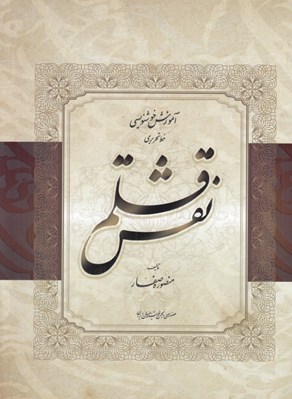 آموزش خوشنویسی
خط تحریری
نفس قلم
تألیف
منصوره صفار